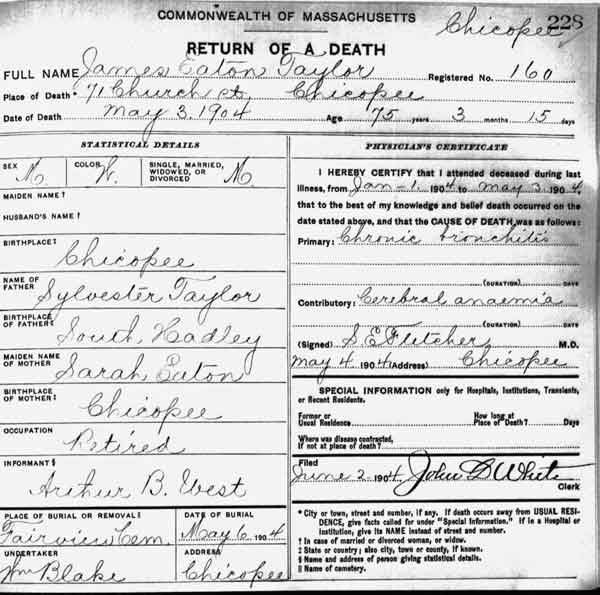 COMMONWEALTH OF MASSACHUSETTS
Chicopee 228
RETURN OF A DEATH
FULL NAME James Eaton Taylor Registered No. 160
Place of Death * 71 Church st. Chicopee
Date of Death May 3, 1904 Age 75 years 3 months 15 days
STATISTICAL DETAILS
SEX M. COLOR W. SINGLE, MARRIED, WIDOWED, OR DIVORCED M.
MAIDEN NAME †
HUSBAND'S NAME †
BIRTHPLACE ‡
Chicopee
NAME OF FATHER
Sylvester Taylor
BIRTHPLACE OF FATHER ‡
South Hadley
MAIDEN NAME OF MOTHER
Sarah Eaton
BIRTHPLACE OF MOTHER ‡
Chicopee
OCCUPATION
Retired
INFORMANT §
Arthur B. West
PLACE OF BURIAL OR REMOVAL ‖ DATE OF BURIAL
Fairview Cem. May 6, 1904
UNDERTAKER ADDRESS
Wm Blake Chicopee
PHYSICIAN'S CERTIFICATE
I HEREBY CERTIFY that I attended deceased during last
illness, from Jan-1 1904 to May 3 1904,
that to the best of my knowledge and belief death occurred on the
date stated above, and that the CAUSE OF DEATH was as follows:
Primary: Chronic bronchitis
(DURATION) DAYS
Contributory: Cerebral anaemia
(DURATION) DAYS
(Signed) S. E. Fletcher M.D.
May 4 1904 (Address) Chicopee
SPECIAL INFORMATION only for Hospitals, Institutions, Transients,
or Recent Residents.
Former or Usual Residence How long at Place of Death? Days
Where was disease contracted,
If not at place of death?
Filed
June 2 1904. John D White
Clerk
* City or town, street and number, if any. If death occurs away from USUAL RESI-
DENCE, give facts called for under "Special Information." If in a Hospital or
institution, give its NAME instead of street and number.
† In case of married or divorced woman, or widow.
‡ State or country; also city, town or county, if known.
§ Name and address of person giving statistical details.
‖ Name of cemetery.